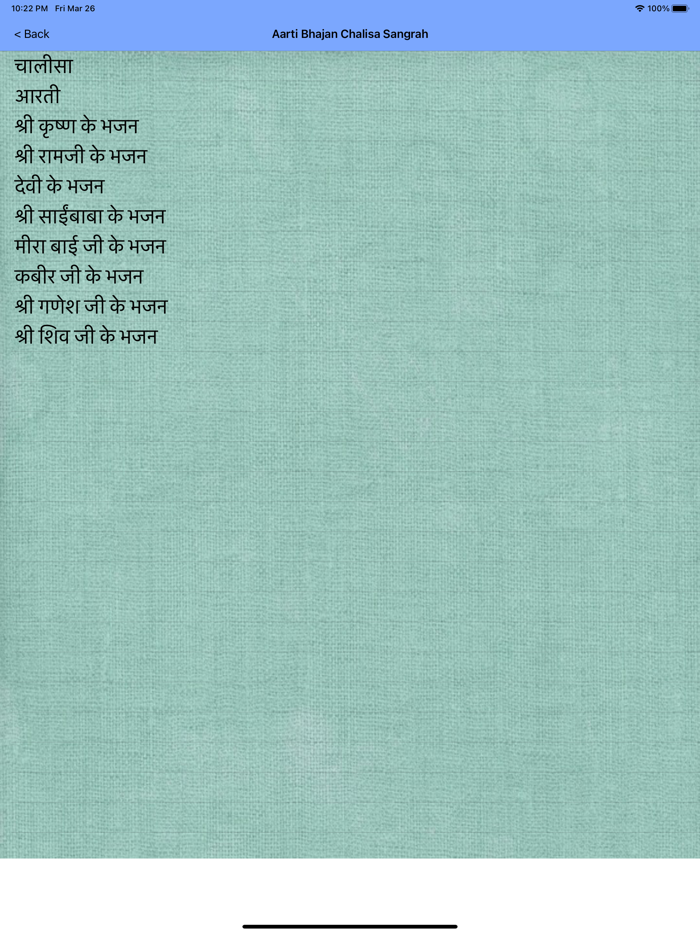 10:22 PM Fri Mar 26 100%
< Back Aarti Bhajan Chalisa Sangrah
चालीसा
आरती
श्री कृष्ण के भजन
श्री रामजी के भजन
देवी के भजन
श्री साईंबाबा के भजन
मीरा बाई जी के भजन
कबीर जी के भजन
श्री गणेश जी के भजन
श्री शिव जी के भजन